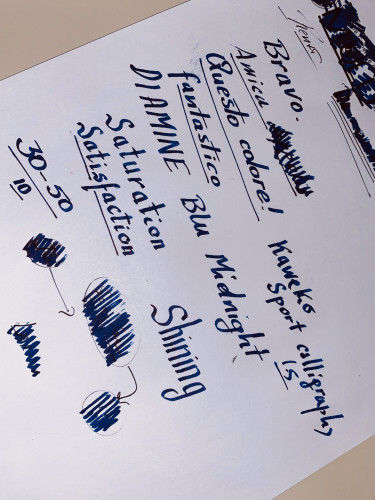 Bravo.
Amica
Questo colore!
fantastico
DIAMINE Blu Midnight
Saturation
Satisfaction
30-50
10
Shining
Kaweko
Sport calligraphy
1.5